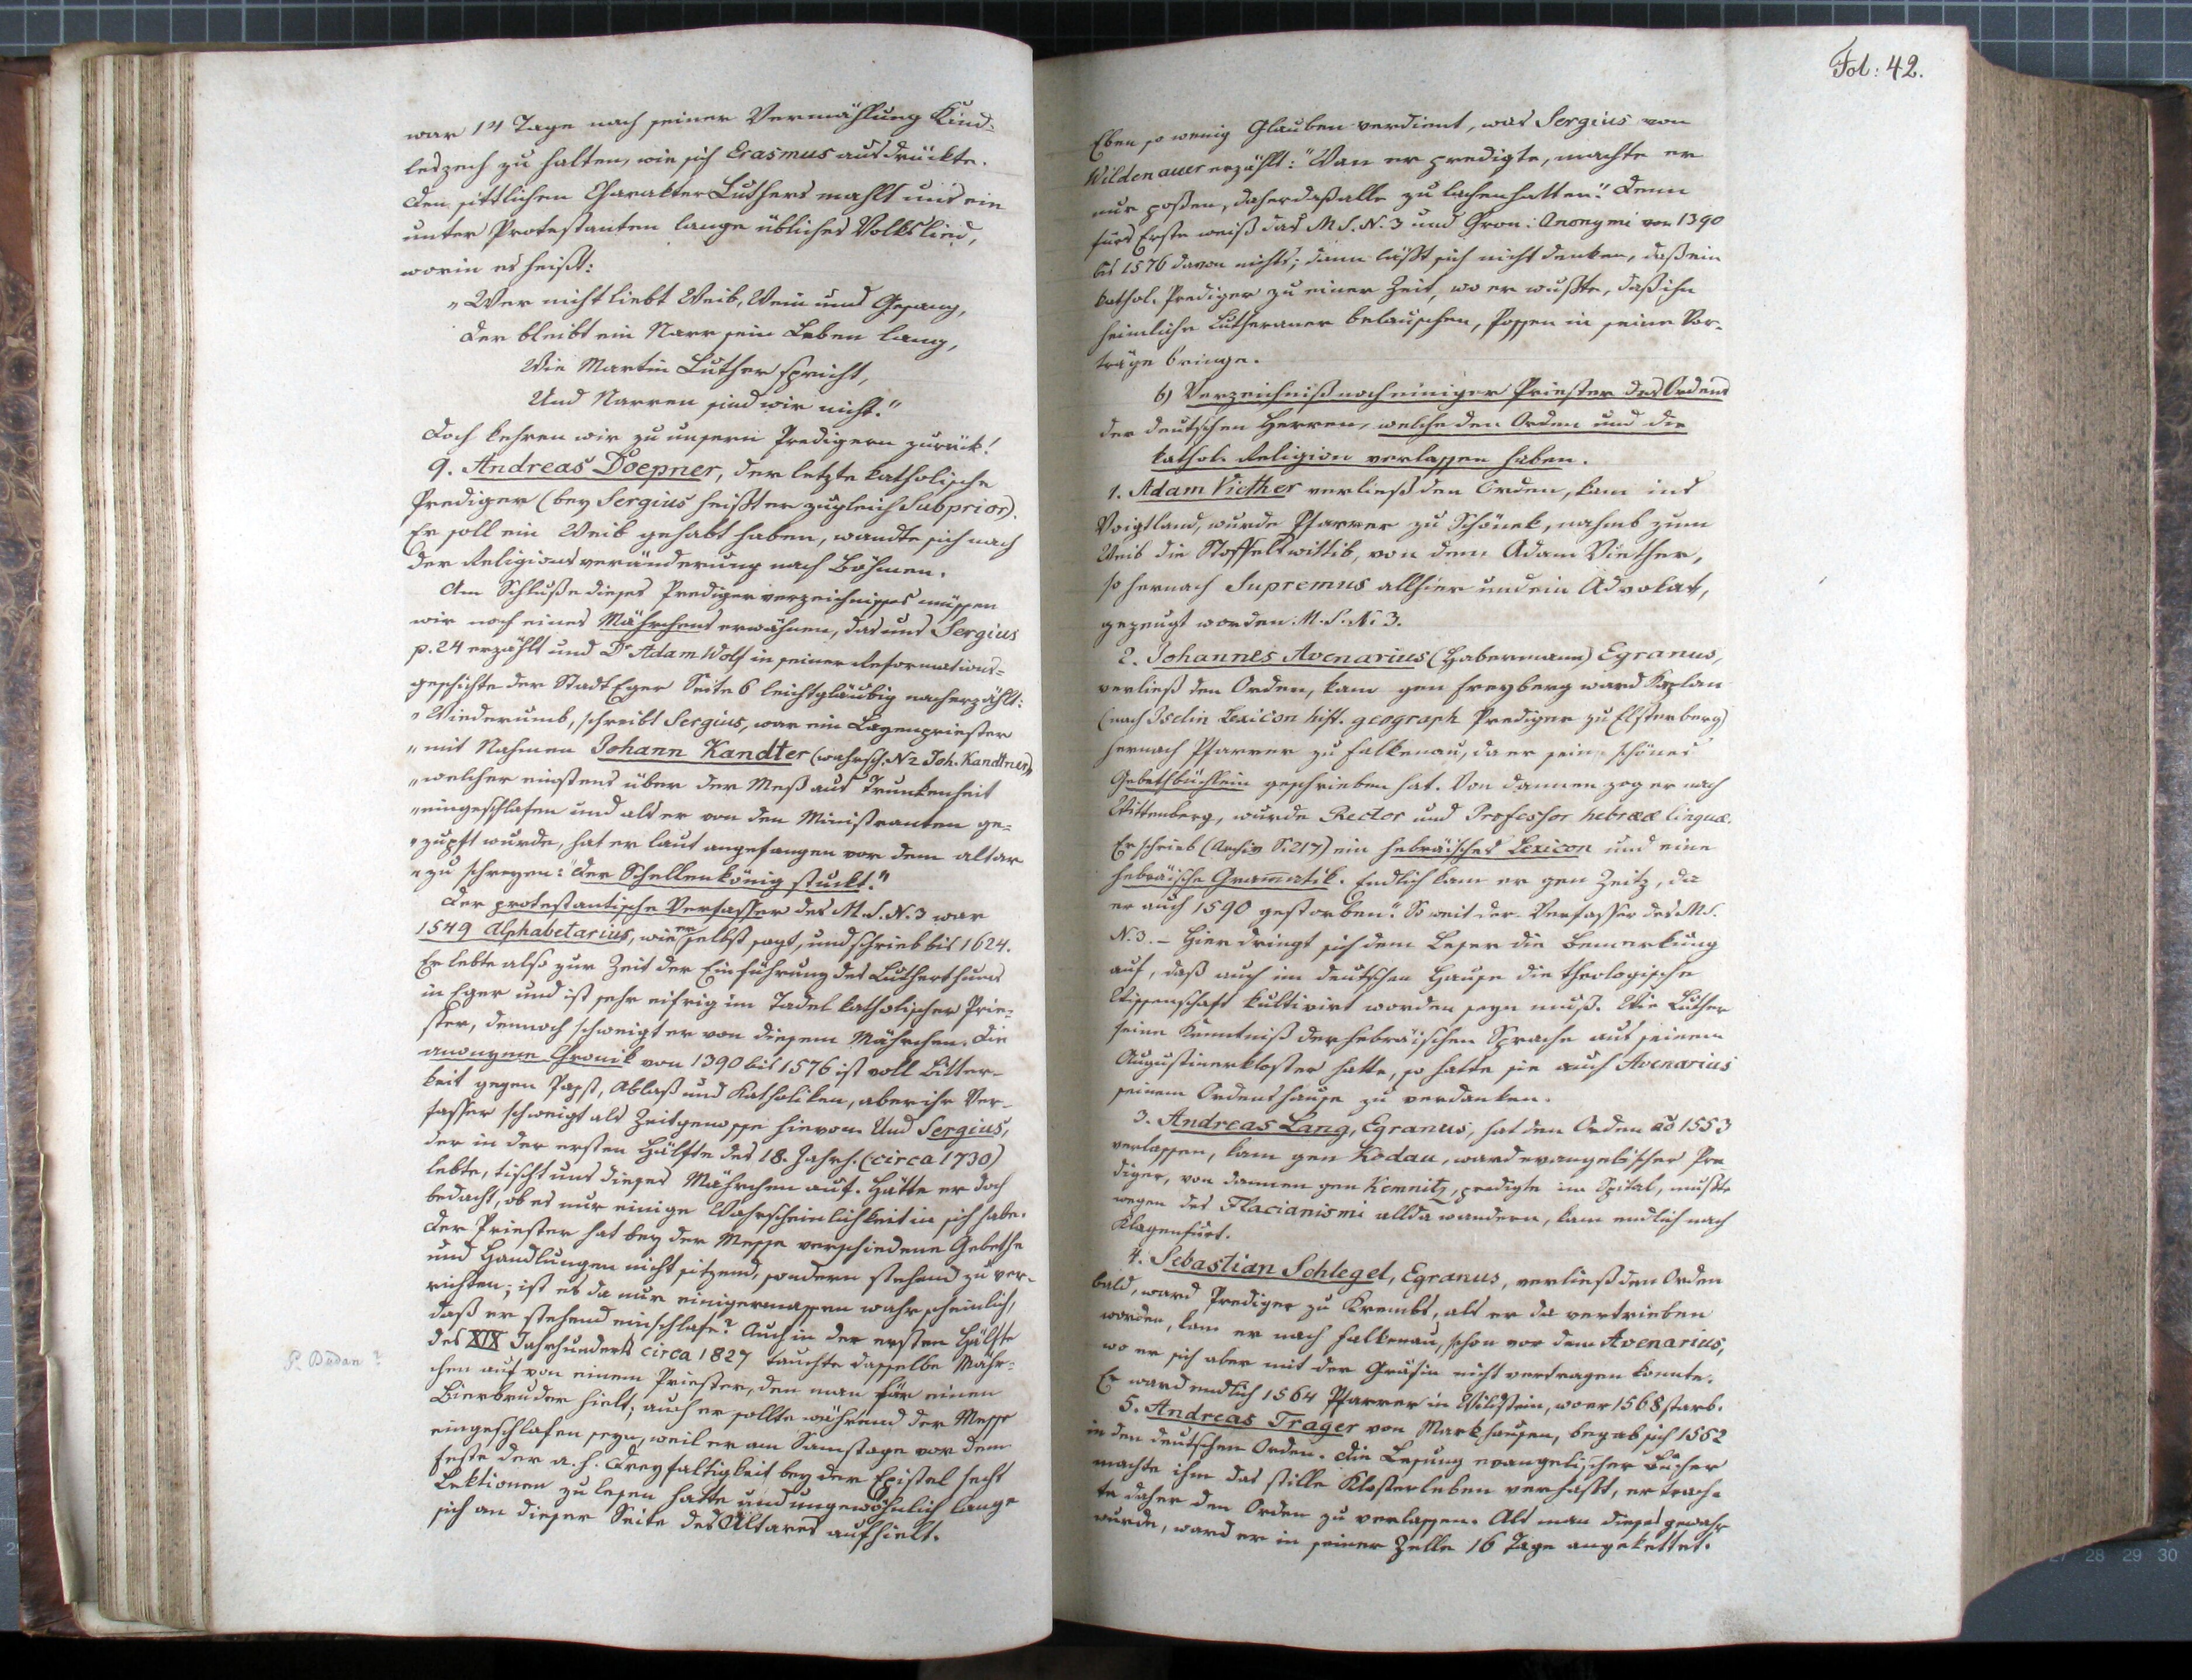 war 14 Tage nach seiner Vermählung Kind-
leszech zu halten, wie sich Erasmus ausdrückte.
Den sittlichen Charakter Luthers mahlt uns ein
unter Protestanten lange übliches Volkslied,
worin es heißt:
„Wer nicht liebt Weib, Wein und Gesang,
Der bleibt ein Narr sein Leben lang,
Wie Martin Luther spricht,
Und Narren sind wir nicht."
Doch kehren wir zu unsern Predigern zurück!
9. Andreas Doepner, der letzte katholische
Prediger (bey Sergius heißt er zugleich Subprior).
Er soll ein Weib gehabt haben, wandte sich nach
der Religionsveränderung nach Böhmen.
Am Schluße dieses Predigerverzeichnisses müssen
wir noch eines Mährchens erwähnen, das uns Sergius
p. 24 erzählt und Dr Adam Wolf in seiner Reformations-
geschichte der Stadt Eger Seite 6 leichtgläubig nacherzählt:
„Wiederumb, schreibt Sergius, war ein Layenpriester
„mit Nahmen Johann Kandter (wahrsch. N 2 Joh. Kandtner)
„welcher einstens über der Meß aus Trunkenheit
„eingeschlafen und als er von den Ministranten ge-
„zupft wurde, hat er laut angefangen vor dem altar
„zu schreyen: „Der Schellenkönig stuckt."
Der protestantische Verfasser des M. S. N. 3 war
1549 Alphabetarius, wie er selbst sagt, und schrieb bis 1624.
Er lebte also zur Zeit der Einführung des Lutherthums
in Eger und ist sehr eifrig im Tadel katholischer Prie-
ster, dennoch schweigt er von diesem Mährchen. Die
anonyme Chronik von 1390 bis 1576 ist voll Bitter-
keit gegen Papst, Ablaß und Katholiken, aber ihr Ver-
fasser schweigt als Zeitgenosse hievon. Und Sergius,
der in der ersten Hälfte des 18. Jahrh. (circa 1730)
lebte, tischt uns dieses Mährchen auf. Hätte er doch
bedacht, ob es nur einige Wahrscheinlichkeit in sich habe.
Der Priester hat bey der Messe verschiedene Gebethe
und Handlungen nicht sitzend, sondern stehend zu ver-
richten; ist es da nur einigermassen wahrscheinlich,
daß er stehend einschlafe? Auch in der ersten Hälfte
des XIX Jahrhunderts circa 1827 tauchte dasselbe Mähr-
chen auf von einem Priester, den man für einen
Bierbruder hielt; auch er sollte während der Messe
eingeschlafen seyn, weil er am Samstage vor dem
Feste der a. h. Dreyfaltigkeit bey der Epistel sechs
Lektionen zu lesen hatte und ungewöhnlich lange
sich an dieser Seite des Altares aufhielt.
P. Dudan?
Fol: 42.
Eben so wenig Glauben verdient, was Sergius von
Wildenauer erzählt: „Wan er predigte, machte er
nur poßen, daher daß alle zu lachen hatten." Denn
fürs Erste weiß das M S. N. 3 und Chron: Anonymi von 1390
bis 1576 davon nichts; dann läßt sich nicht denken, daß ein
kathol. Prediger zu einer Zeit, wo er wußte, daß ihn
heimliche Lutheraner belauschen, Possen in seine Vor-
träge bringe.
6) Verzeichniß noch einiger Priester des Ordens
der deutschen Herren, welche den Orden und die
kathol. Religion verlassen haben.
1. Adam Viether verließ den Orden, kam ins
Voigtland, wurde Pfarrer zu Schönek, nahmb zum
Weib die Stoffels wittib, von dem Adam Viether,
so hernach Supremus allhier und ein Advokat,
gezeugt worden. M. S. N. 3.
2. Johannes Avenarius (Habermann) Egranus,
verließ den Orden, kam gen Freyberg ward Kaplan
(nach Iselin Lexicon hist. geograph Prediger zu Elsterberg)
hernach Pfarrer zu Falkenau, da er sein schönes
Gebethbüchlein geschrieben hat. Von dannen zog er nach
Wittenberg, wurde Rector und Professor hebrææ linguæ.
Er schrieb (Archiv S. 217) ein hebräisches Lexicon und eine
hebräische Gramatik. Endlich kam er gen Zeitz, da
er auch 1590 gestorben." So weit der Verfasser des MS.
N. 3. – Hier dringt sich dem Leser die Bemerkung
auf, daß auch im deutschen Hause die theologische
Wissenschaft kultivirt worden seyn muß. Wie Luther
seine Kenntniß der hebräischen Sprache aus seinem
Augustinerkloster hatte, so hatte sie auch Avenarius
seinem Ordenshause zu verdanken.
3. Andreas Lang, Egranus, hat den Orden ao 1553
verlassen, kam gen Kodau, ward evangelischer Pre-
diger, von dannen gen Kemnitz, predigte im Spital, mußte
wegen des Flacianismi allda wandern, kam endlich nach
Klagenfurt.
4. Sebastian Schlegel, Egranus, verließ den Orden
bald, ward Prediger zu Krembs, als er da vertrieben
worden, kam er nach Falkenau, schon vor dem Avenarius,
wo er sich aber mit der Gräfin nicht vertragen konnte.
Er ward endlich 1564 Pfarrer in Wildstein, wo er 1568 starb.
5. Andreas Trager von Markhausen, begab sich 1552
in den deutschen Orden. Die Lesung evangelischer Bücher
machte ihm das stille Klosterleben verhaßt, er trach-
te daher den Orden zu verlassen. Als man dieses gewahr
wurde, ward er in seiner Zelle 16 Tage angekettet.